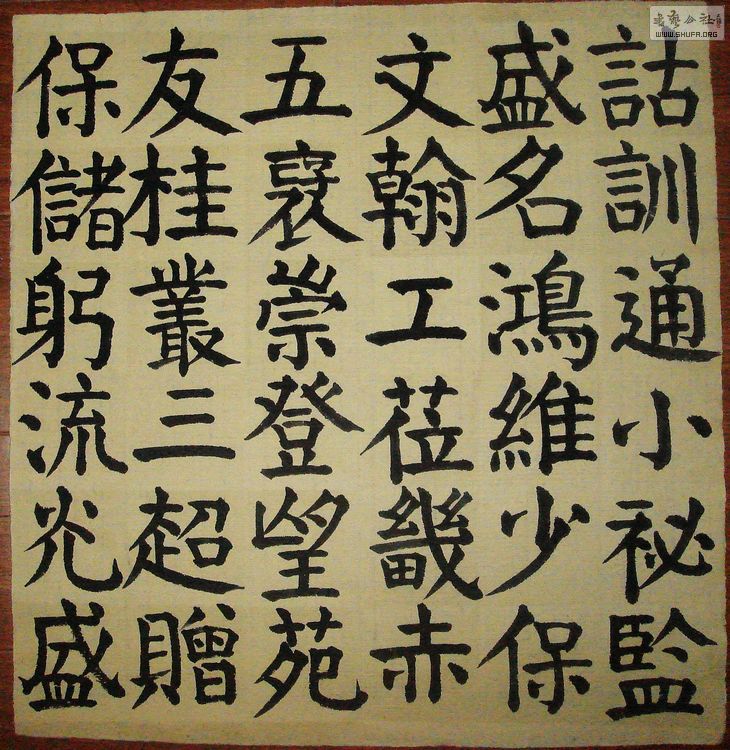 詁訓通小祕監
盛名鴻維少保
文翰工莅畿赤
五襃崇登望苑
友桂叢三超贈
保儲躬流光盛
書藝公社
WWW.SHUFA.ORG